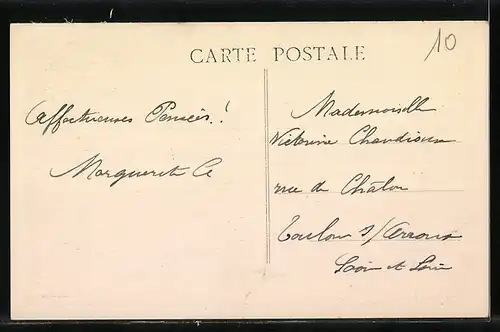 CARTE POSTALE
10
Affectueuses Pensées.!
Marguerite
Mademoiselle
Victorine
rue de Châlon
Toulon s/ Arroux
Saône et Loire